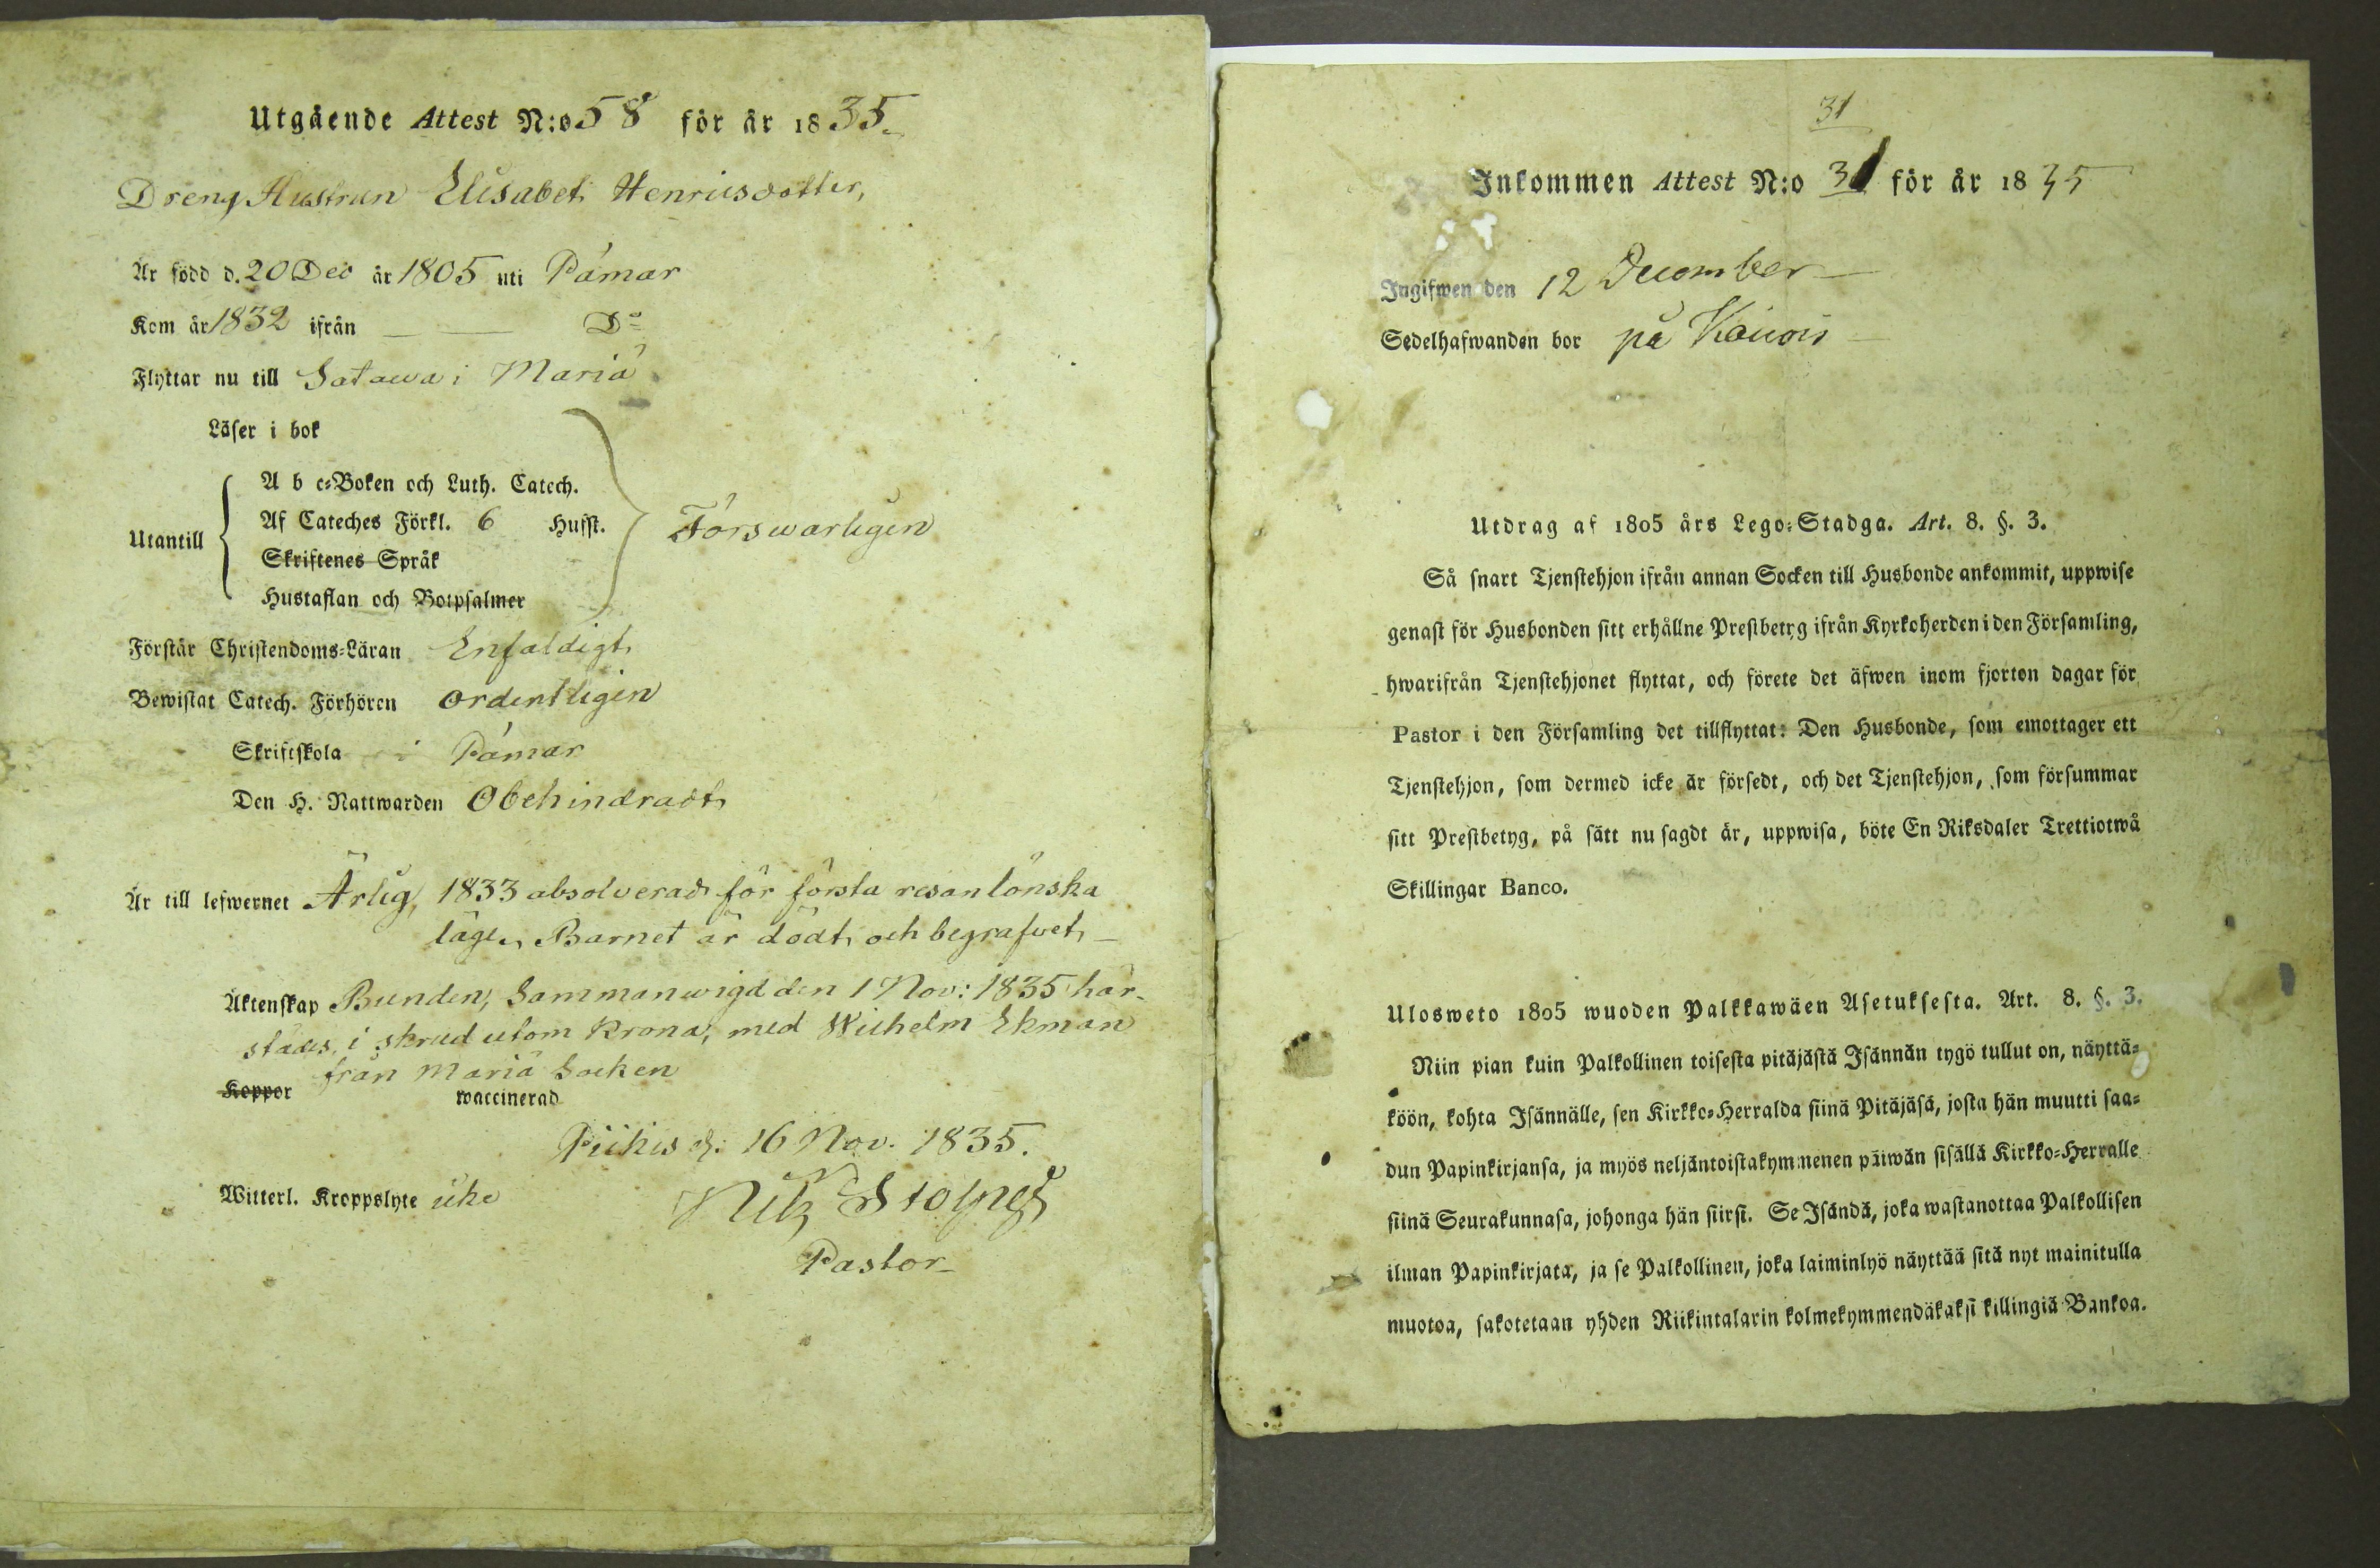 Utgående Attest N:o 58 för år 1835.
Dreng Hustrun Elisabet Henricsdotter,
Är född d. 20 Dec år 1805 uti Pämar
Kom år 1832 ifrån — — Do
Flyttar nu till Satawa i Mariä
Läser i bok
A b c-Boken och Luth. Catech.
Af Cateches Förkl. 6 Husst.
Utantill
Förswarligen
Skriftenes Språk
Hustaflan och Botpsalmer
Förstår Christendoms-Läran Enfaldigt
Bewistat Catech. Förhören ordentligen
Skriftskola i Pämar
Den H. Nattwarden Obehindradt
Är till lefwernet Ärlig, 1833 absolverad för första resan lönska
läge, Barnet är dödt och begrafvet —
Äktenskap Bunden, Sammanwigd den 1 Nov: 1835 här-
städes, i skrud utom Krona, med Wilhelm Ekman
från Mariä Socken
Koppor waccinerad
Piikis d. 16 Nov. 1835.
Witterl. Kroppslyte icke
Pastor
31
Inkommen Attest N:o 31 för år 1835
Ingifwen den 12 December
Sedelhafwanden bor på
Utdrag af 1805 års Lego-Stadga. Art. 8. §. 3.
Så snart Tjenstehjon ifrån annan Socken till Husbonde ankommit, uppwise
genast för Husbonden sitt erhållne Prestbetyg ifrån Kyrkoherden i den Församling,
hwarifrån Tjenstehjonet flyttat, och förete det äfwen inom fjorton dagar för
Pastor i den Församling det tillflyttat: Den Husbonde, som emottager ett
Tjenstehjon, som dermed icke är försedt, och det Tjenstehjon, som försummar
sitt Prestbetyg, på sätt nu sagdt är, uppwisa, böte En Riksdaler Trettiotwå
Skillingar Banco.
Ulosweto 1805 wuoden Palkkawäen Asetuksesta. Art. 8. §. 3.
Niin pian kuin Palkollinen toisesta pitäjästä Isännän tygö tullut on, näyttä-
köön, kohta Isännälle, sen Kirkko-Herralda siinä Pitäjäsä, josta hän muutti saa-
dun Papinkirjansa, ja myös neljäntoistakymmenen päiwän sisällä Kirkko-Herralle
siinä Seurakunnasa, johonga hän siirsi. Se Isändä, joka wastanottaa Palkollisen
ilman Papinkirjata, ja se Palkollinen, joka laiminlyö näyttää sitä nyt mainitulla
muotoa, sakotetaan yhden Riikintalarin kolmekymmendäkaksi killingiä Bankoa.